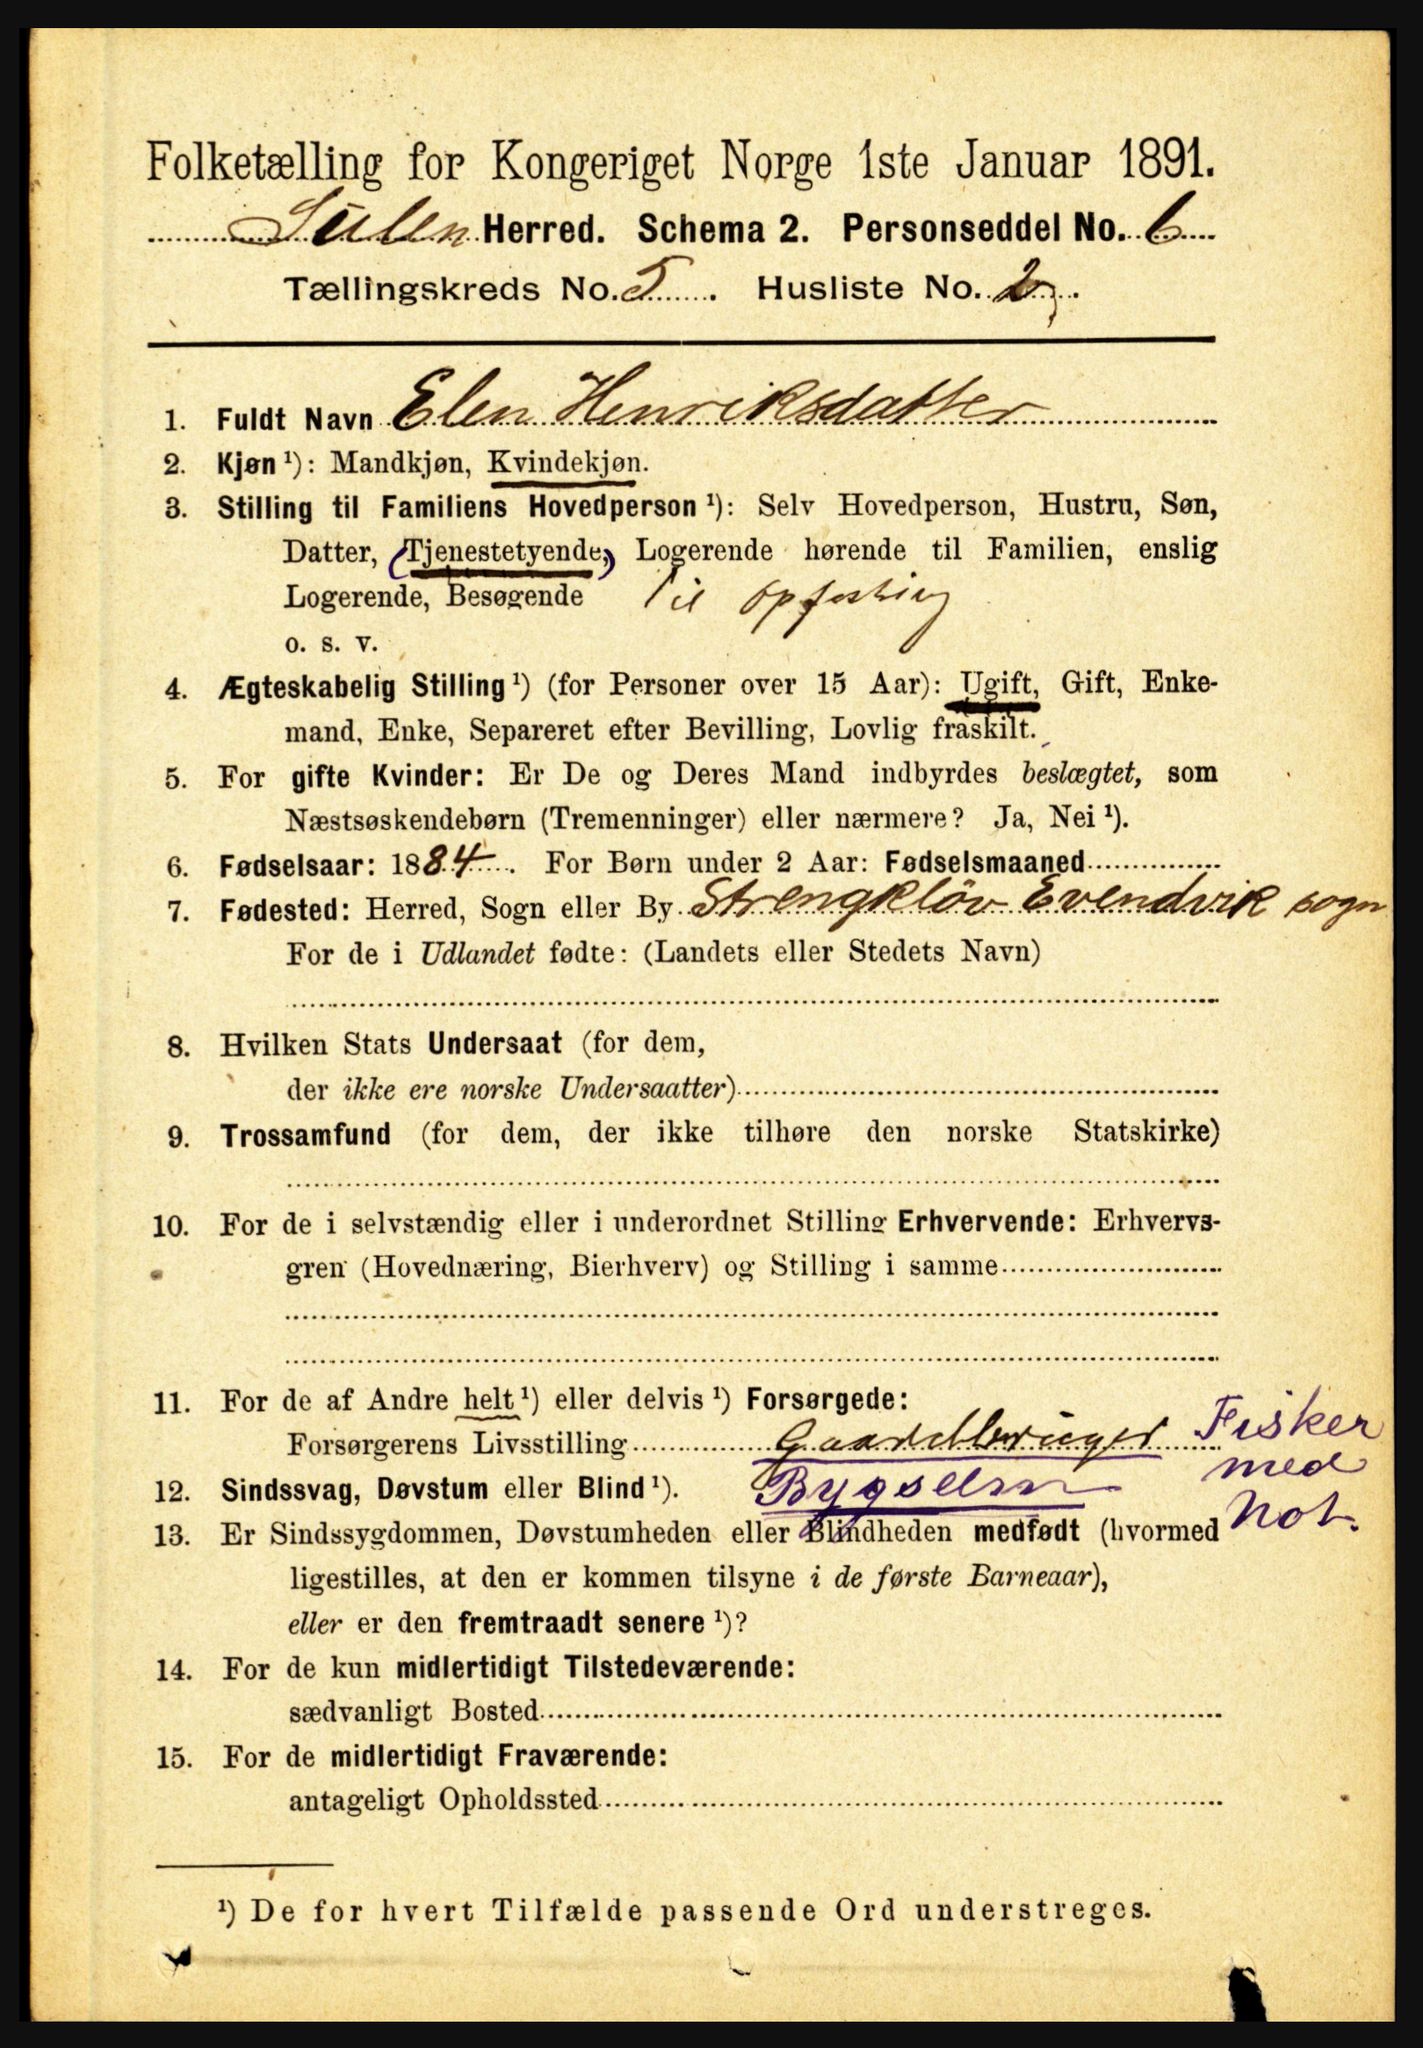 Folketælling for Kongeriget Norge 1ste Januar 1891.
Sulen Herred. Schema 2. Personseddel No. 6
Tællingskreds No. 5. Husliste No. 2.
1. Fuldt Navn Elen Henriksdatter
2. Kjøn ¹): Mandkjøn, Kvindekjøn.
3. Stilling til Familiens Hovedperson ¹): Selv Hovedperson, Hustru, Søn,
Datter, (Tjenestetyende,) Logerende hørende til Familien, enslig
Logerende, Besøgende Til opfostring
o. s. v.
4. Ægteskabelig Stilling ¹) (for Personer over 15 Aar): Ugift, Gift, Enke-
mand, Enke, Separeret efter Bevilling, Lovlig fraskilt.
5. For gifte Kvinder: Er De og Deres Mand indbyrdes beslægtet, som
Næstsøskendebørn (Tremenninger) eller nærmere? Ja, Nei ¹).
6. Fødselsaar: 1884. For Børn under 2 Aar: Fødselsmaaned
7. Fødested: Herred, Sogn eller By Strengkløv Evendvik sogn
For de i Udlandet fødte: (Landets eller Stedets Navn)
8. Hvilken Stats Undersaat (for dem,
der ikke ere norske Undersaatter)
9. Trossamfund (for dem, der ikke tilhøre den norske Statskirke)
10. For de i selvstændig eller i underordnet Stilling Erhvervende: Erhvervs-
gren (Hovednæring, Bierhverv) og Stilling i samme
11. For de af Andre helt ¹) eller delvis ¹) Forsørgede:
Forsørgerens Livsstilling Gaardbruger Fisker
med
12. Sindssvag, Døvstum eller Blind ¹). Bygselm
Not.
13. Er Sindssygdommen, Døvstumheden eller Blindheden medfødt (hvormed
ligestilles, at den er kommen tilsyne i de første Barneaar),
eller er den fremtraadt senere ¹)?
14. For de kun midlertidigt Tilstedeværende:
sædvanligt Bosted
15. For de midlertidigt Fraværende:
antageligt Opholdssted
¹) De for hvert Tilfælde passende Ord understreges.